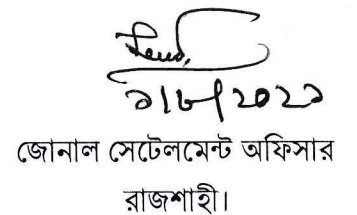 ৯/৮/২০২১
জোনাল সেটেলমেন্ট অফিসার
রাজশাহী।